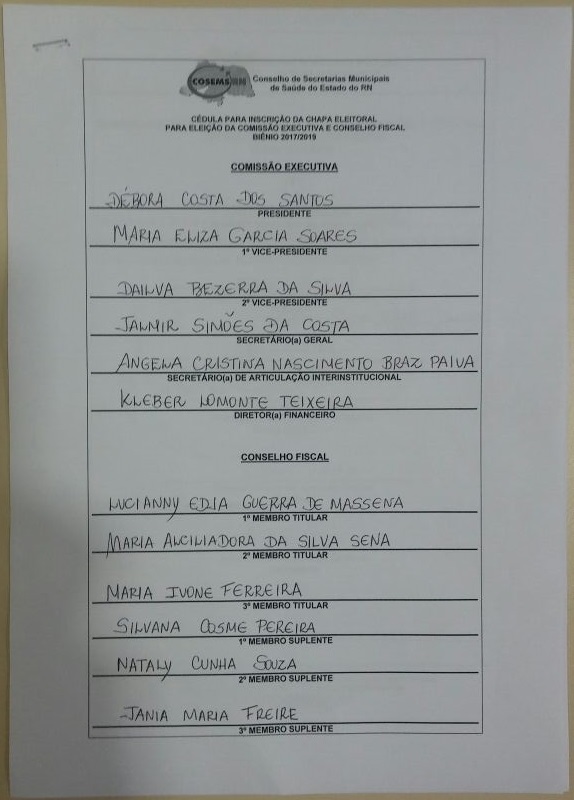 COSEMS/RN Conselho de Secretarias Municipais
de Saúde do Estado do RN
CÉDULA PARA INSCRIÇÃO DA CHAPA ELEITORAL
PARA ELEIÇÃO DA COMISSÃO EXECUTIVA E CONSELHO FISCAL
BIÊNIO 2017/2019
COMISSÃO EXECUTIVA
DÉBORA COSTA DOS SANTOS
PRESIDENTE
MARIA ELIZA GARCIA SOARES
1º VICE-PRESIDENTE
DAILVA BEZERRA DA SILVA
2º VICE-PRESIDENTE
JALMIR SIMÕES DA COSTA
SECRETÁRIO(a) GERAL
ANGELA CRISTINA NASCIMENTO BRAZ PAIVA
SECRETÁRIO(a) DE ARTICULAÇÃO INTERINSTITUCIONAL
KLEBER LOMONTE TEIXEIRA
DIRETOR(a) FINANCEIRO
CONSELHO FISCAL
LUCIANNY EDIA GUERRA DE MASSENA
1º MEMBRO TITULAR
MARIA ALCILIADORA DA SILVA SENA
2º MEMBRO TITULAR
MARIA IVONE FERREIRA
3º MEMBRO TITULAR
SILVANA COSME PEREIRA
1º MEMBRO SUPLENTE
NATALY CUNHA SOUZA
2º MEMBRO SUPLENTE
JANIA MARIA FREIRE
3º MEMBRO SUPLENTE